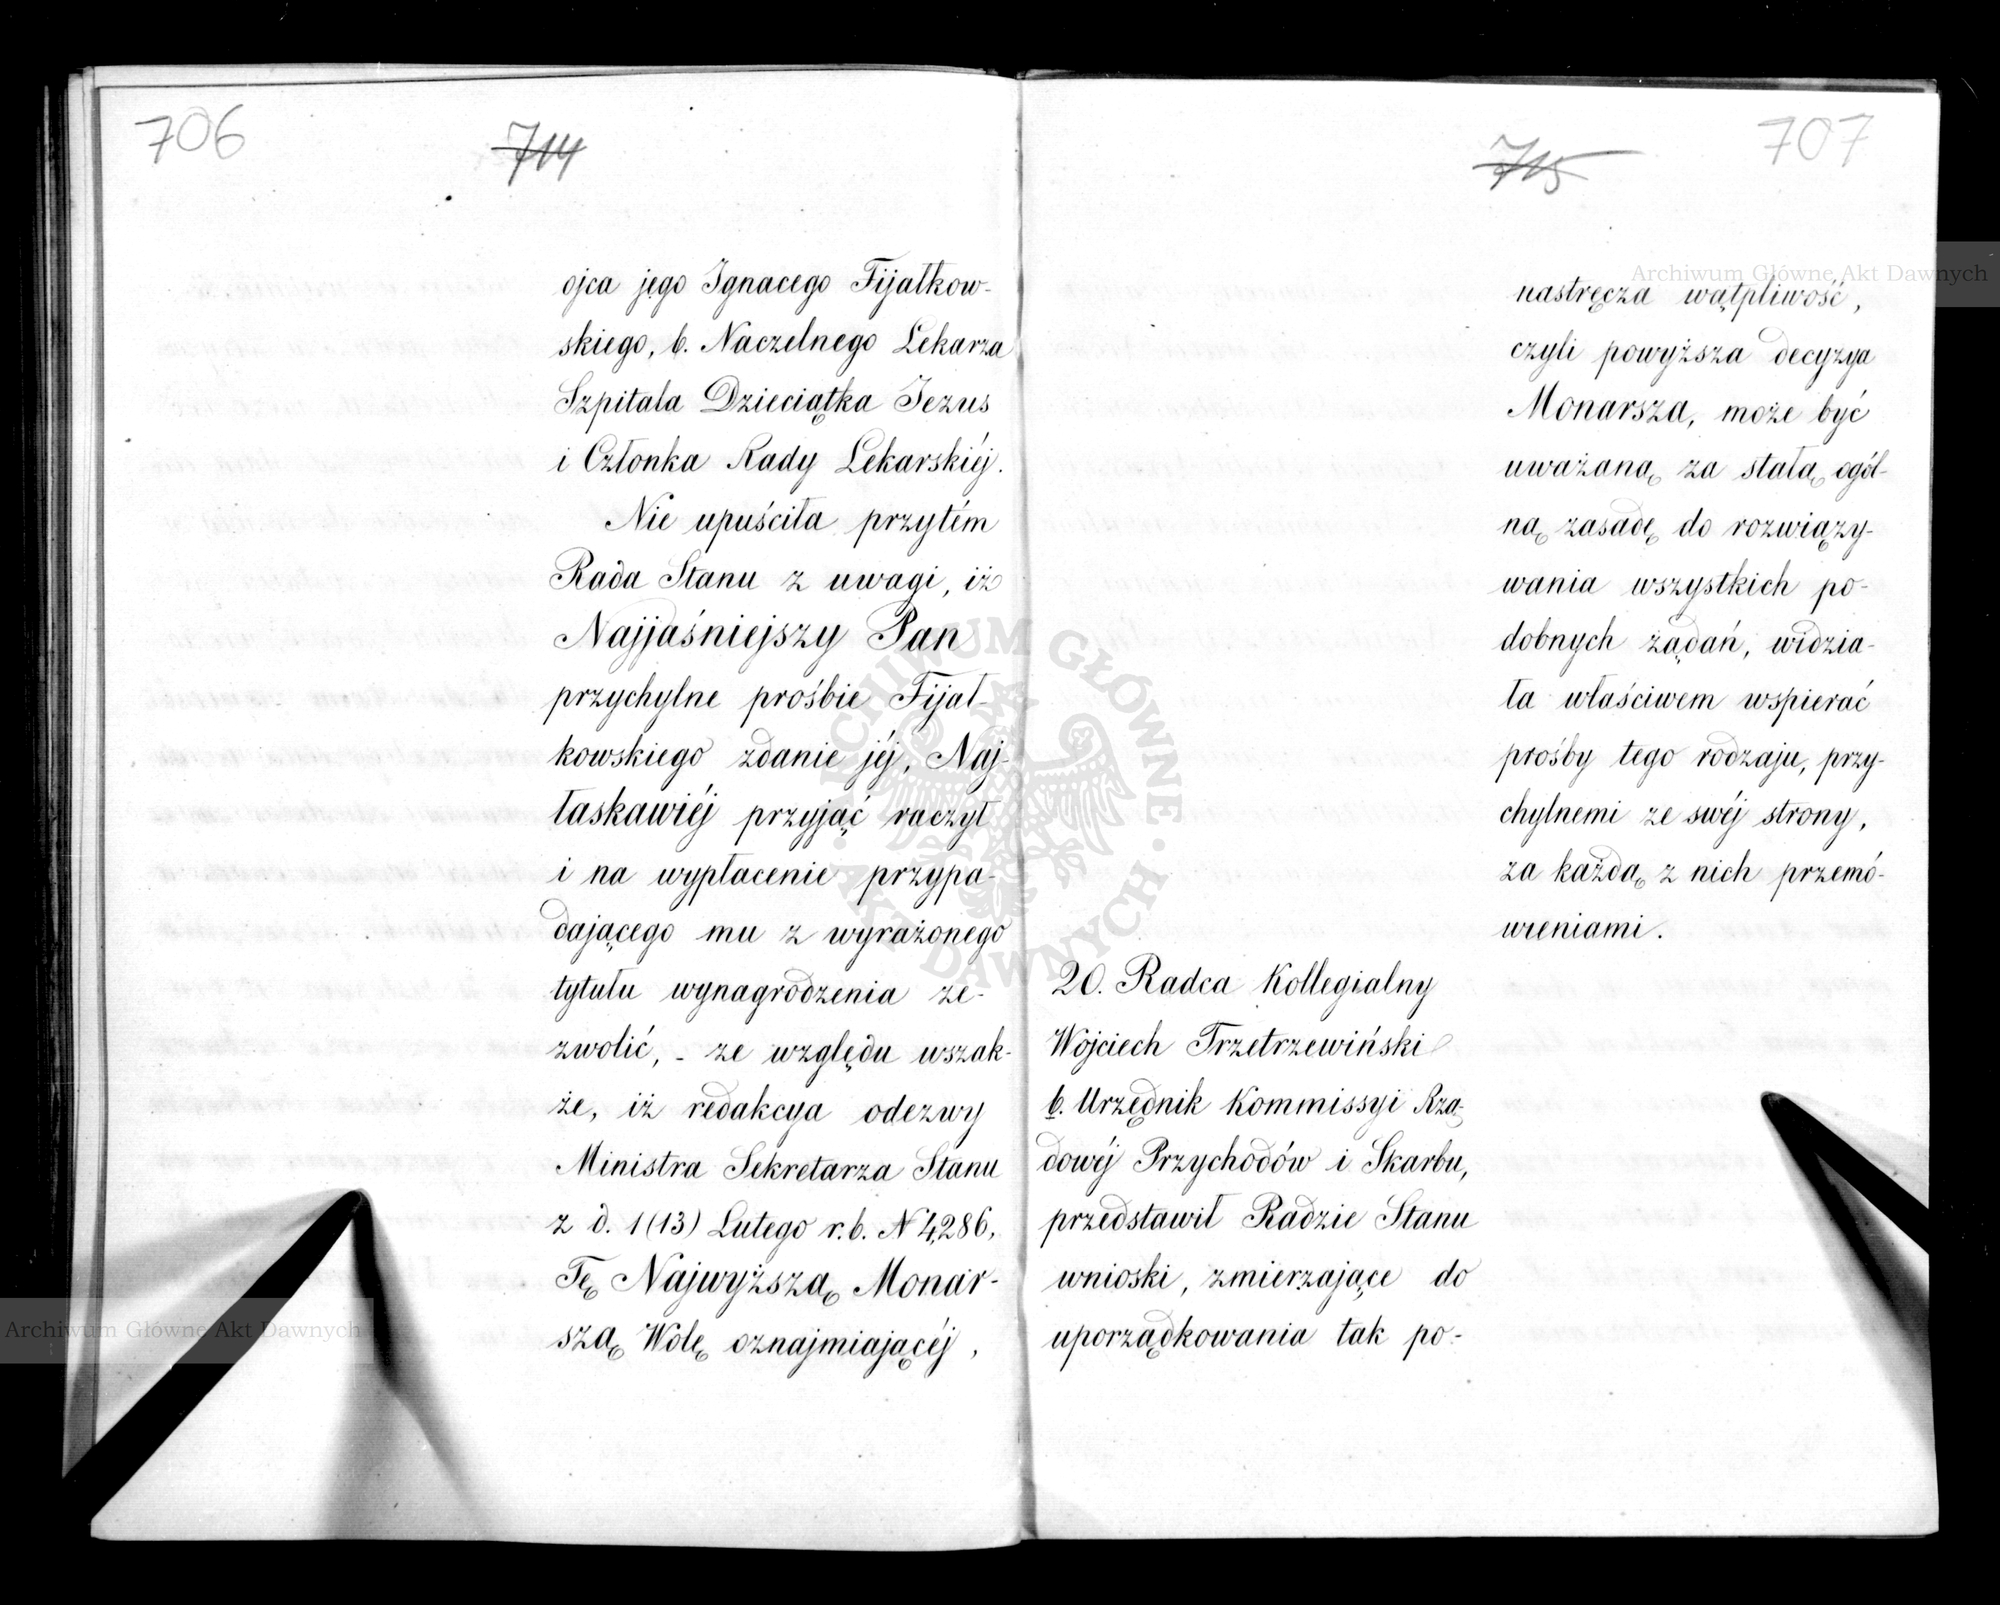 706
714
ojca jego Ignacego Fijałkow-
skiego, b. Naczelnego Lekarza
Szpitala Dzieciątka Jezus
i Członka Rady Lekarskiéj.
Nie upuściła przytém
Rada Stanu z uwagi, iż
Najjaśniejszy Pan
przychylne prośbie Fijał-
kowskiego zdanie jéj, Naj-
łaskawiéj przyjąć raczył
i na wypłacenie przypa-
dającego mu z wyrażonego
tytułu wynagrodzenia ze-
zwolić, - ze względu wszak-
że, iż redakcya odezwy
Ministra Sekretarza Stanu
z d. 1 (13) Lutego r. b. N 4,286,
Tę Najwyższą Monar-
szą Wolę oznajmiającéj,
715
707
nastręcza wątpliwość,
czyli powyższa decyzya
Monarsza, może być
uważaną za stałą ogól-
ną zasadę do rozwiązy-
wania wszystkich po-
dobnych żądań, widzia-
ła właściwem wspierać
prośby tego rodzaju, przy-
chylnemi ze swéj strony,
za każdą z nich przemó-
wieniami.
20. Radca Kollegialny
Wojciech Trzetrzewiński
b. Urzędnik Kommissyi Rzą-
dowéj Przychodów i Skarbu,
przedstawił Radzie Stanu
wnioski, zmierzające do
uporządkowania tak po-
Archiwum Główne Akt Dawnych
Archiwum Główne Akt Dawnych
ARCHIWUM GŁÓWNE · AKT DAWNYCH ·